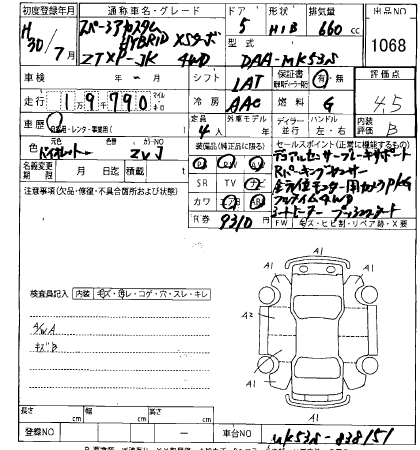 初度登録年月 通称車名・グレード ドア 形状 排気量 出品NO
H30/7月 スペーシアカスタム HYBRID XSターボ 5 H/B 660 cc 1068
ZTXP-JK 4WD 型式 DAA-MK53S
車検 年 - 月 シフト LAT 保証書 有・無 評価点
走行 19790 マイル キロ 冷房 AAC 燃料 G 4.5
車歴 自家用・レンタ・事業用 定員 4人 外車モデル ディーラー 並行 ハンドル 左・右 内装評価 B
色 元色 バイオレット 色番 ZVJ カラーNO 装備品(純正品に限る) セールスポイント(正常に機能するもの)
名義変更期限 月 日迄 積載 デュアルセンサーブレーキサポート
注意事項(欠品・修復・不具合箇所および状態) SR TV ナビ Rパーキングセンサー
カワ エアB ABS 全方位モニター用カメラPKG
フルタイム4WD
R券 9310 シートヒーター プッシュスタート
FW キズ・ヒビ割・リペア跡・X要
検査員記入 内装 キズ・汚レ・コゲ・穴・スレ・キレ
A/W A
キズB
A1
A1 A1
A2
A1
A1
長さ cm 幅 cm 高さ cm
登録NO - 車台NO MK53S-838151